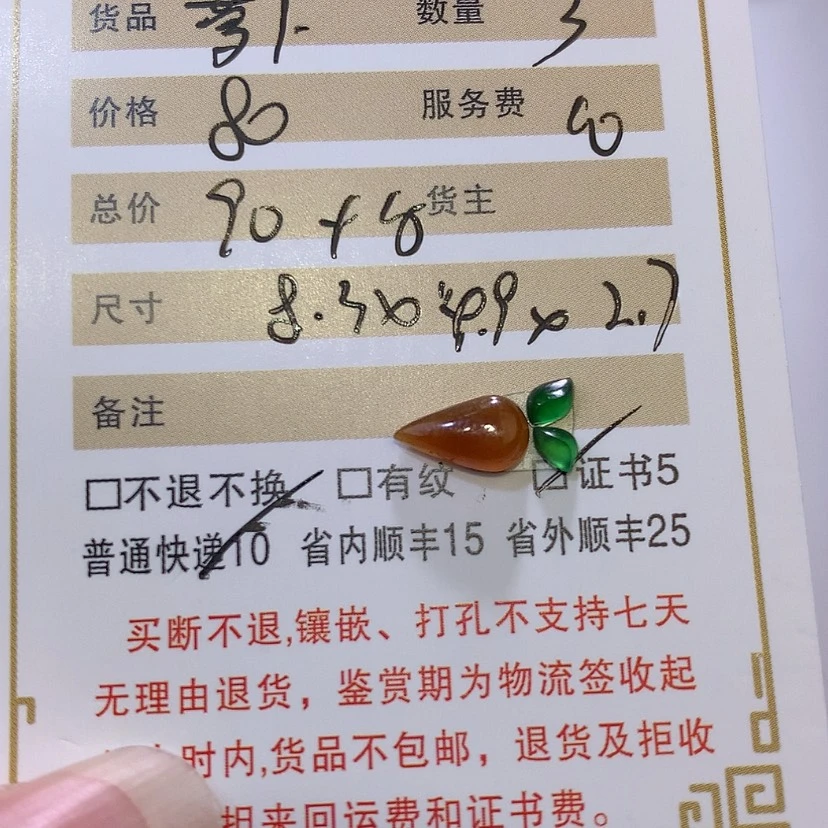 货品 萝卜 数量 3
价格 80 服务费 10
总价 90+8 货主
尺寸 8.3×4.9×2.7
备注
□不退不换 □有纹 □证书5
普通快递10 省内顺丰15 省外顺丰25
买断不退,镶嵌、打孔不支持七天
无理由退货，鉴赏期为物流签收起
时内,货品不包邮，退货及拒收
担来回运费和证书费。